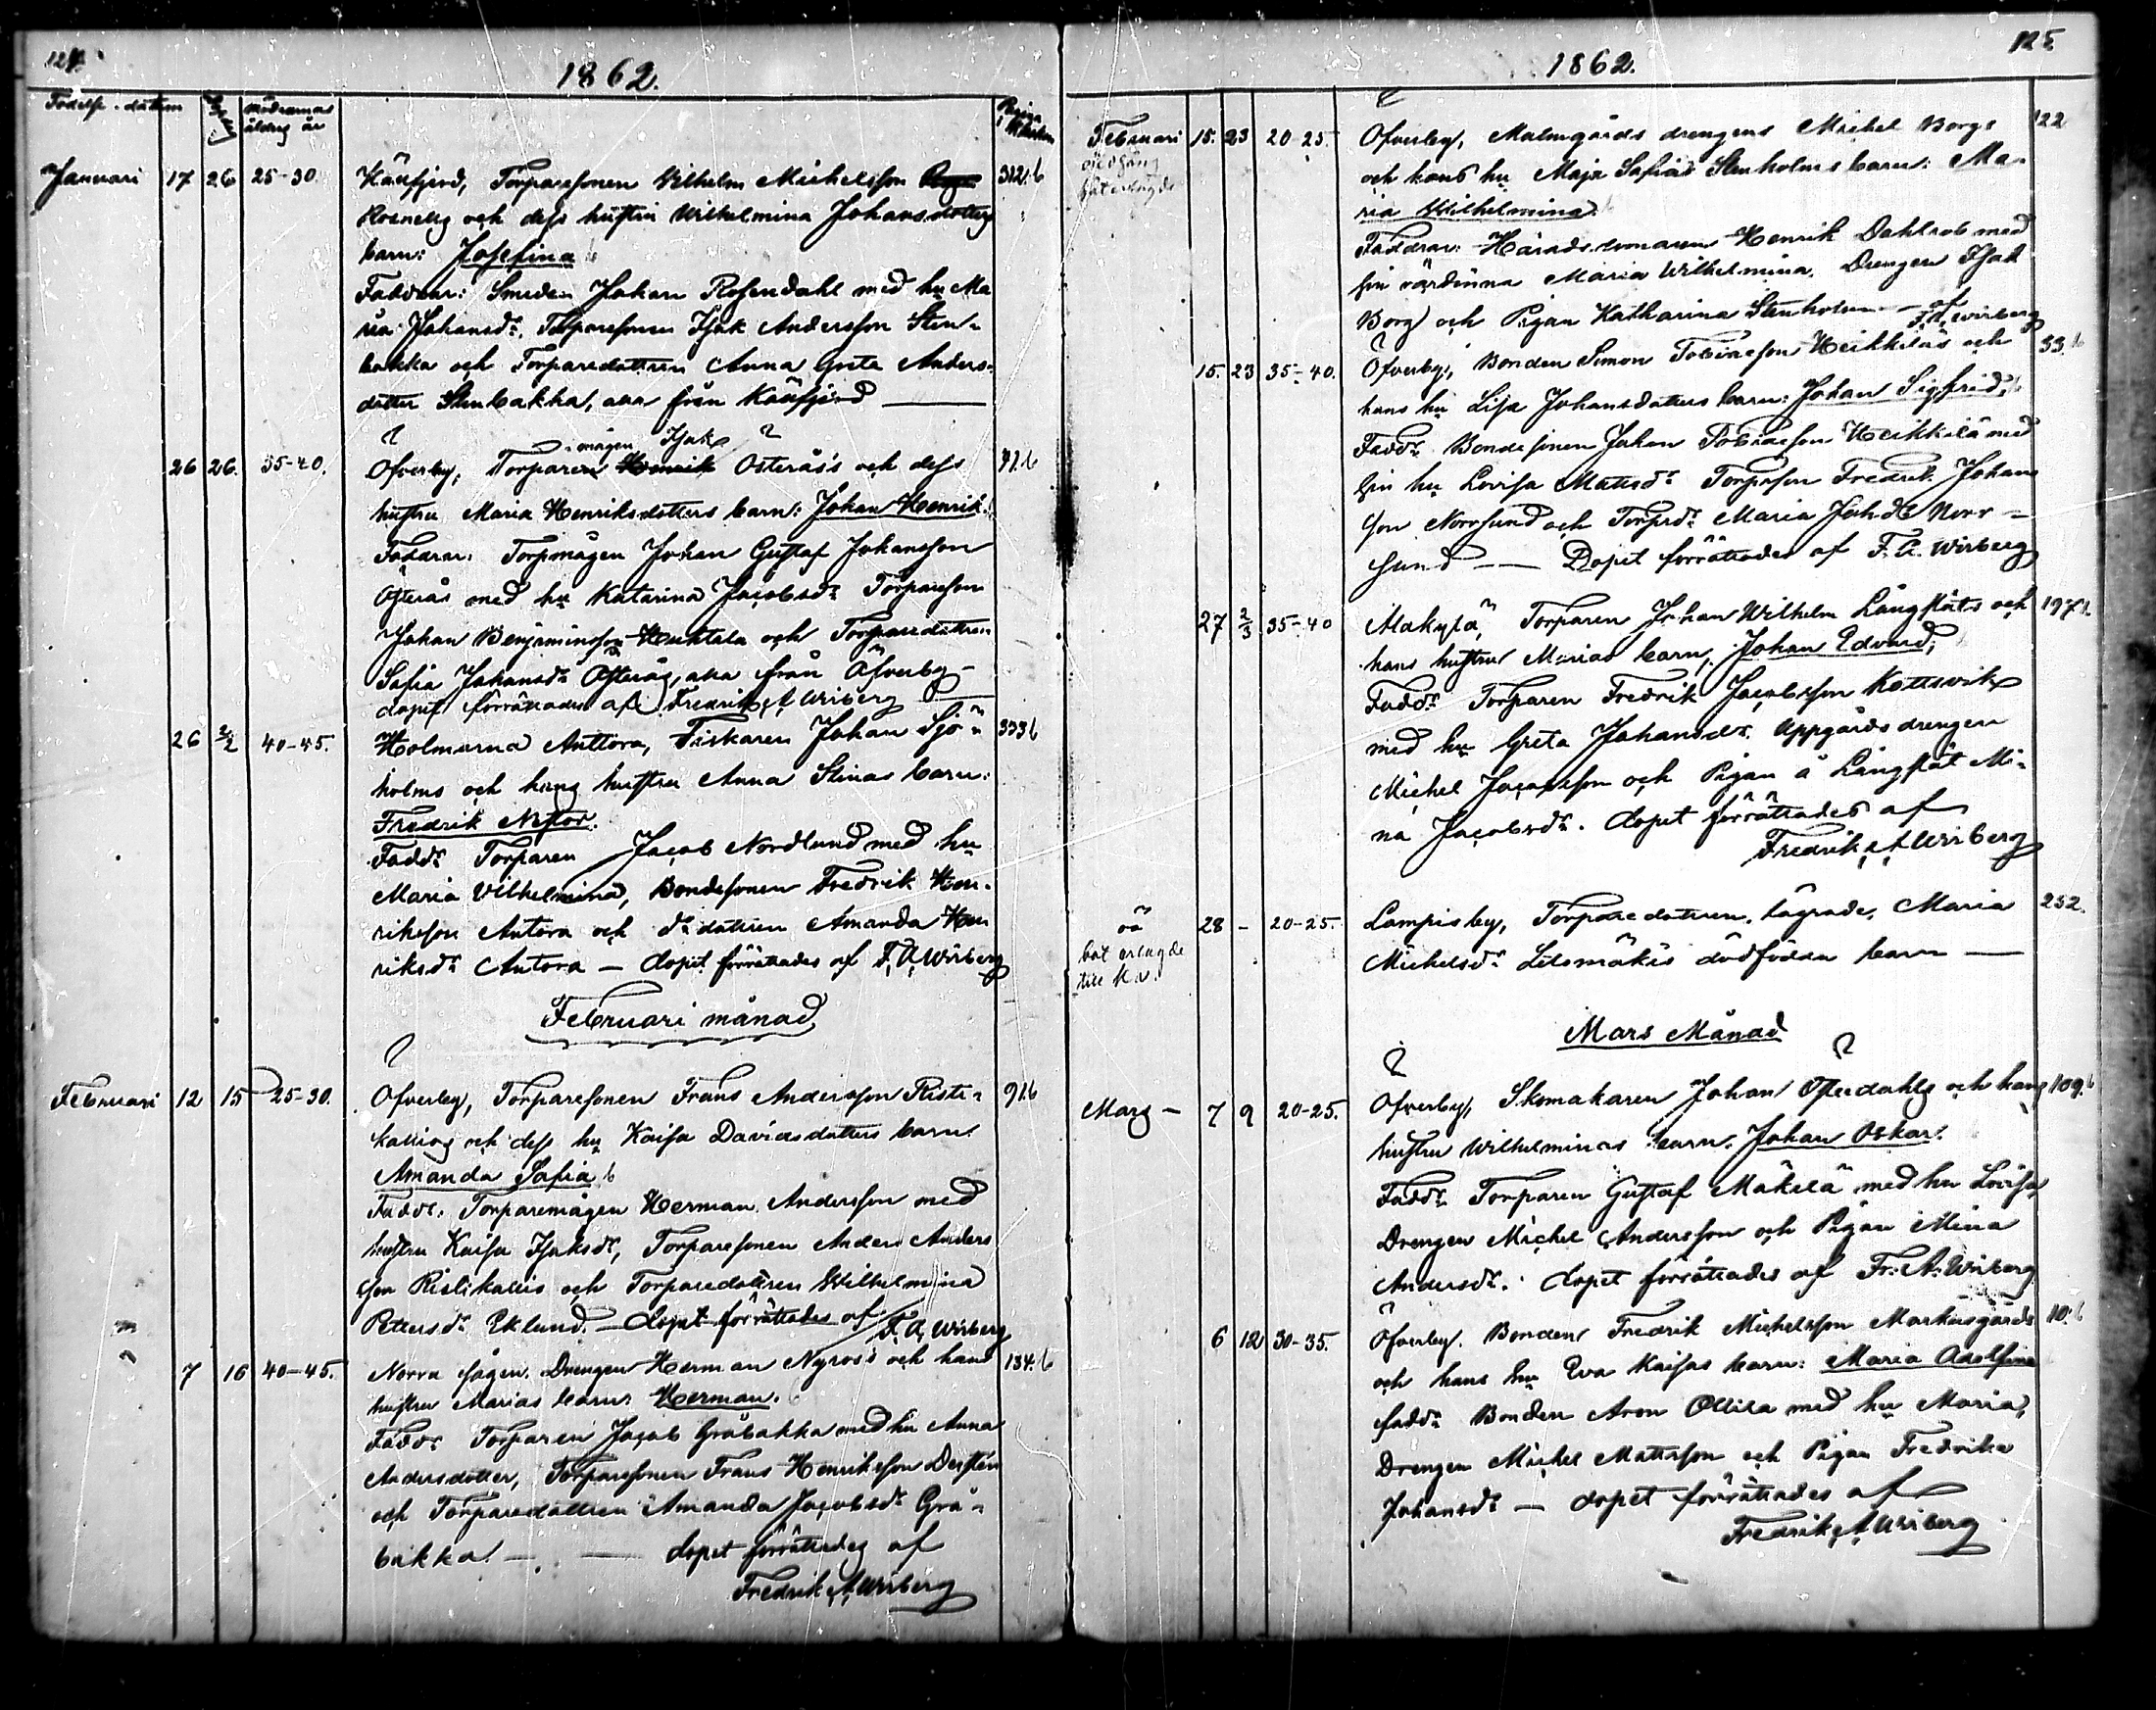 124.
1862.
Födelse-datum
mödrarnas
åldrig år
Pagina
Januari 17 26 25-30. Käufjerd, Torparesonen Wilhelm Michelsson 312.b
och dess hustru Wilhelmina Johansdotters
barn: Josefina
Faddrar: Smeden Johan Rosendahl med hu Ma
ria Johansdr, Torparesonen Isak Andersson Sten-
bakka och Torparedottren Anna Greta Anders-
dotter Stenbakka, alla från Käufjerd
mågen Isak
26 26. 35-40. Öfverby, Torparen Henrik Österås's och dess 71.b
hustru Maria Henriksdotters barn: Johan Henrik.
Faddrar: Torpmågen Johan Gustaf Johansson
Österås med hu Katarina Jacobsdr Torpareson
Johan Benjaminsson Huhtala och Torparedottren
Safia Johansdr Österås, alla från Öfverby-
dopet förrättades af Fredrik A Wiberg
26 2/2 40-45. Holmarna Anttora, Fiskaren Johan Sjö- 333b
holms och hans hustru Anna Stinas barn:
Fredrik Nestor.
Faddr Torparen Jacob Nordlund med hu
Maria Vilhelmina, Bondesonen Fredrik Hen-
riksson Antora och dr dottren Amanda Hen
riksdr Antora — dopet förrättades af F. A. Wiberg
Februari månad
Februari 12 15 25-30. Öfverby, Torparesonen Frans Andersson Risti- 91.b
kallios och dess hu Kaisa Davidsdotters barn
Amanda Safia
Faddr. Torparemågen Herman Andersson med
hustru Kaisa Isaksdr, Torparesonen Anders Anders
son Ristikallio och Torparedottren Wilhelmina
Petersdr Eklund. — dopet förrättades af
F. A. Wiberg
7 16 40-45. Norra sågen. Drengen Herman Nyros's och hans 134.b
hustru Marias barn Herman.
Faddr Torparen Jacob Gråbakka med hu Anna
Andersdotter, Torparesonen Frans Henriksson
och Torparedottren Amanda Jacobsdr Grå-
bakka. — dopet förrättades af
Fredrik A Wiberg
125
1862.
Februari 15. 23 20-25. Öfverby, Malmgårds drengens Michel Borgs 122
och hans hu Maja Safias Stenholms barn: Ma-
ria Wilhelmina.
Faddrar: Häradsdomaren Henrik Dahlrob med
sin värdinna Maria Wilhelmina. Drengen Isak
Borg och Pigan Katharina Stenholm — af
F. A. Wiberg
15. 23 35-40. Öfverby, Bonden Simon Tobiasson Heikkiläs och 33.b
hans hu Lisa Johansdotters barn: Johan Sigfrid.
Faddr Bondesonen Johan Tobiasson Heikkilä med
sin hu Lovisa Mattsdr Torpson Fredrik Johans
son Norrsund och Torpdr Maria Johdr Norr-
sund — Dopet förrättades af F. A. Wiberg
27 2/3 35-40 Alakylä, Torparen Johan Wilhelm Långståts och 197
hans hustru Marias barn, Johan Edvard;
Faddr Torparen Fredrik Jacobsson Kottsvik
med hu Greta Johansdr. Uppgårds drengen
Michel Jacobsson och Pigan å Långståt Mi-
na Jacobsdr. dopet förrättades af
Fredrik A Wiberg
oä
böt erlagde
till K.v.
28 - 20-25. Lampisby, Torparedottren, lägrade, Maria 252.
Michelsdr dödfödda barn —
Mars Månad
Mars — 7 9 20-25. Öfverby, Skomakaren Johan Österdahls och hans 109.b
hustru Wilhelminas barn. Johan Oskar.
Faddr Torparen Gustaf Mäkelä med hu Lovisa,
Drengen Michel Andersson och Pigan Mina
Andersdr. dopet förrättades af Fr. A. Wiberg
6 12 30-35. Öfverby. Bonden Fredrik Michelsson Markusgårds 10.b
och hans hu Eva Kaisas barn: Maria Adolfina
faddr Bonden Aron Ollila med hu Maria,
Drengen Michel Mattsson och Pigan Fredrika
Johansdr — dopet förrättades af
Fredrik A Wiberg